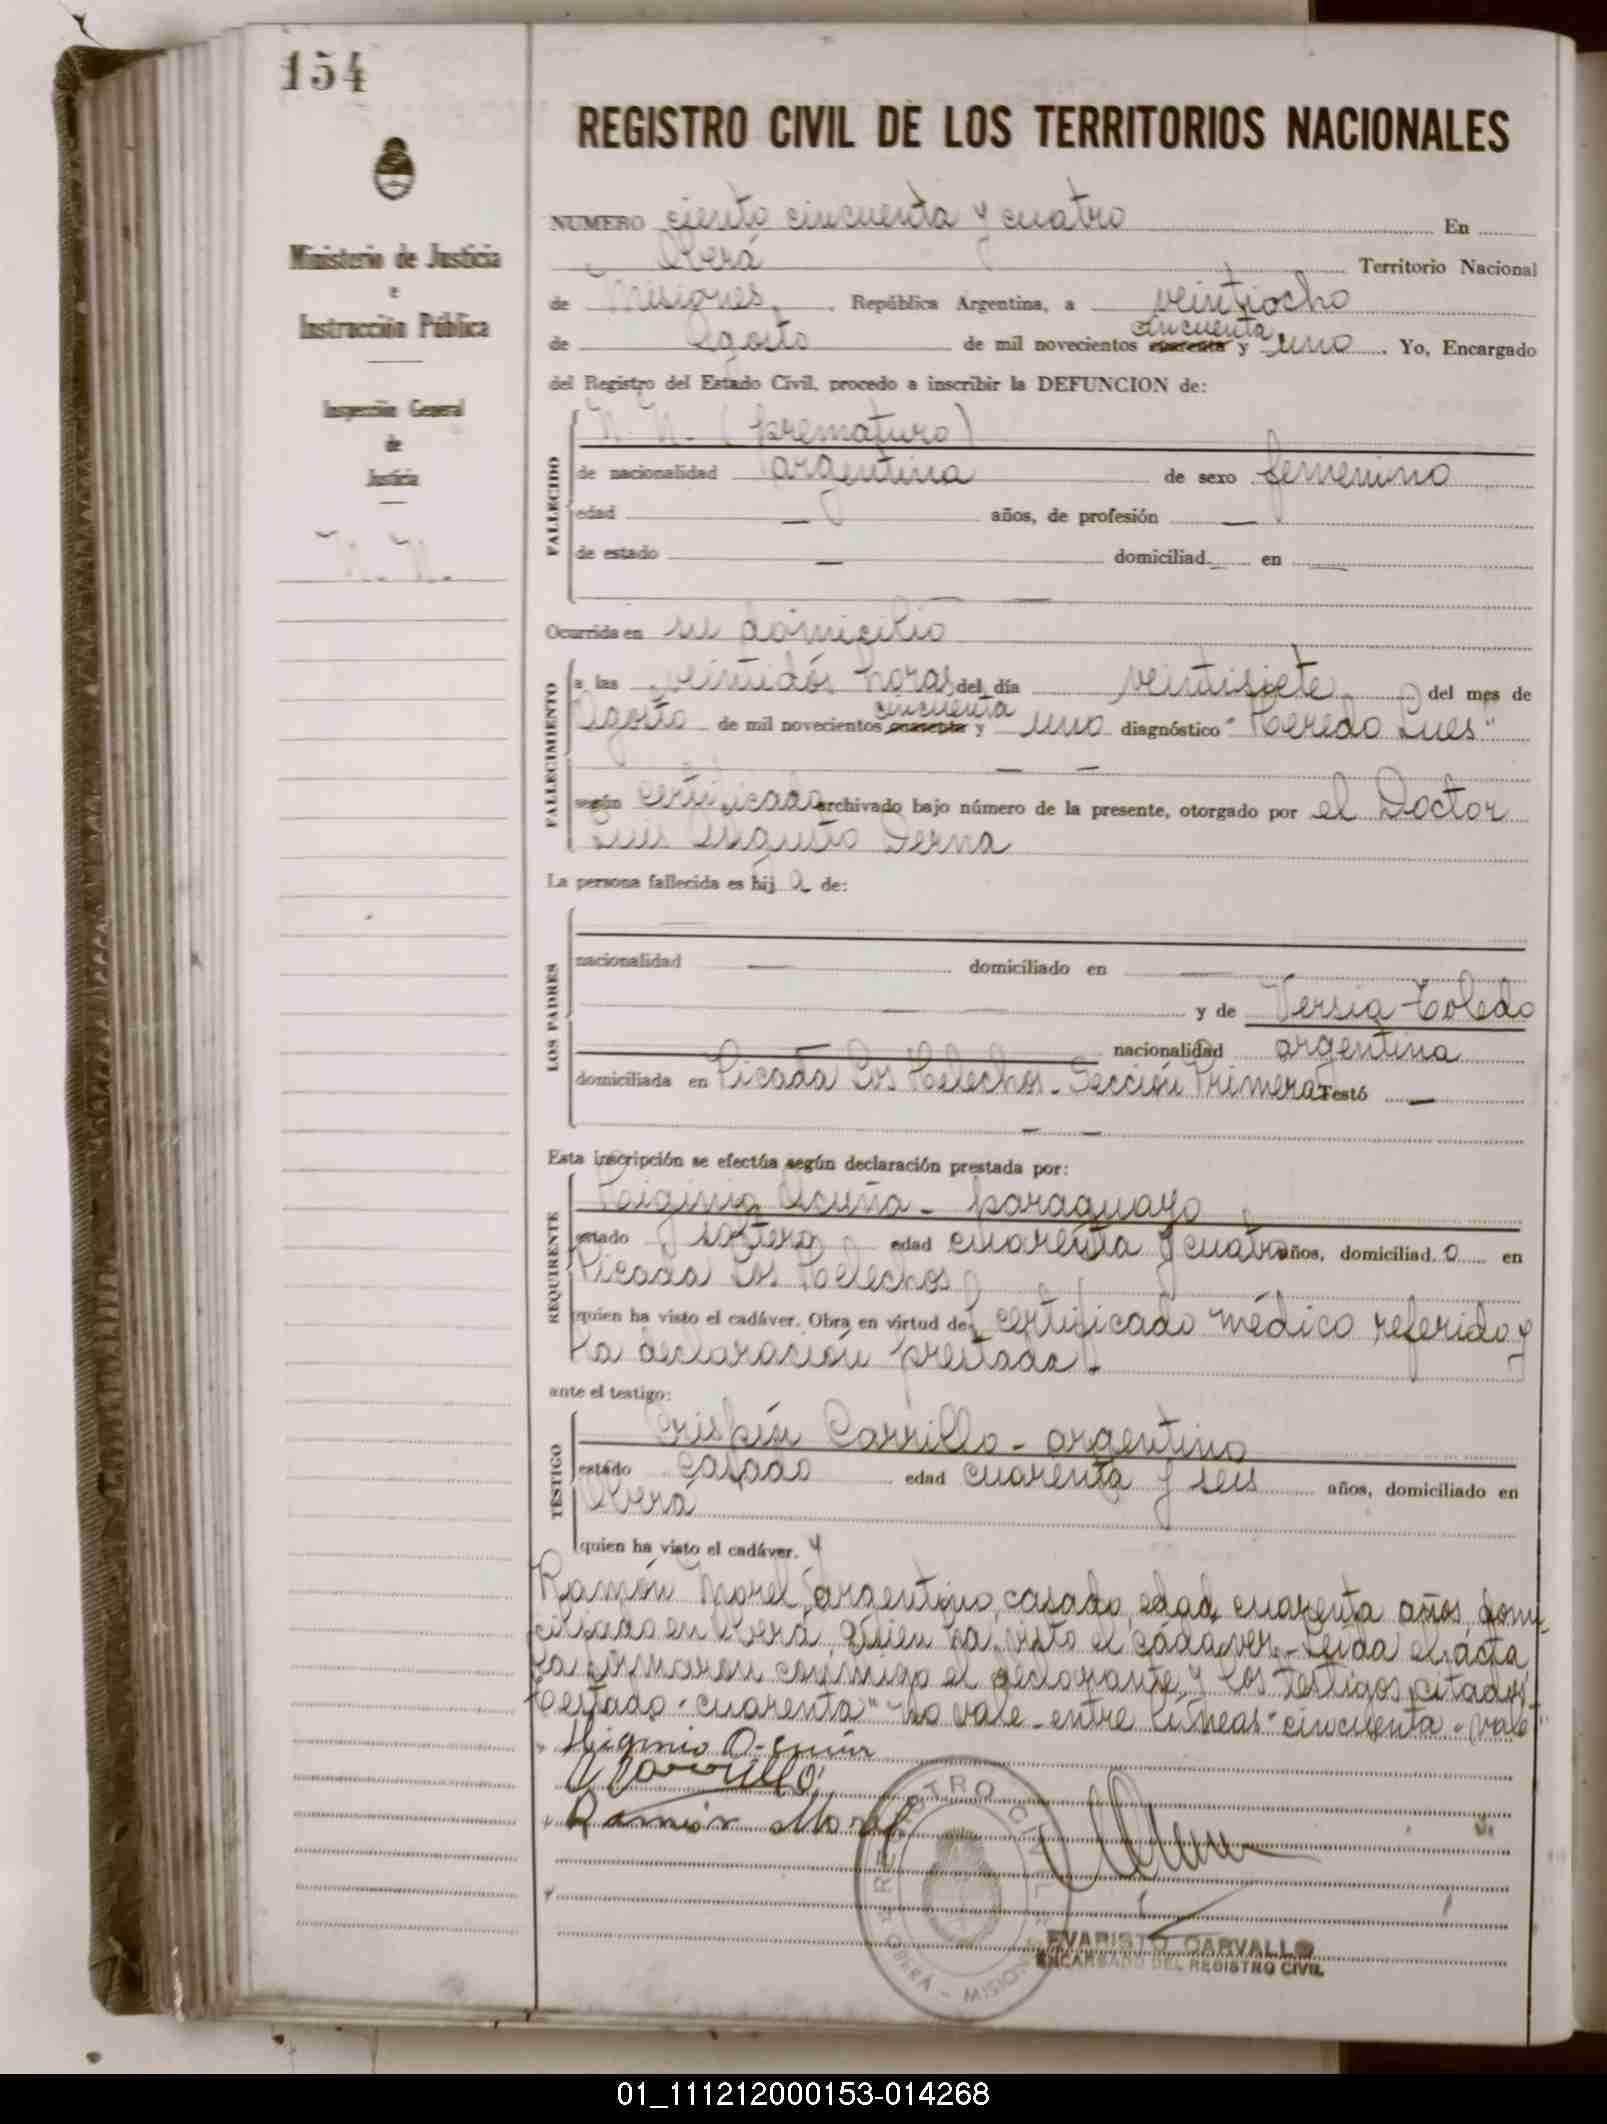 154
REGISTRO CIVIL DE LOS TERRITORIOS NACIONALES
Ministerio de Justicia
e
Instrucción Pública
Inspección General
de
Justicia
N. N.
NUMERO ciento cincuenta y cuatro En
Oberá Territorio Nacional
de Misiones, República Argentina, a veintiocho
de Agosto de mil novecientos cuarenta cincuenta y uno. Yo, Encargado
del Registro del Estado Civil, procedo a inscribir la DEFUNCION de:
FALLECIDO
N. N. (prematuro)
de nacionalidad argentina de sexo femenino
edad — años, de profesión —
de estado — domiciliad — en —
Ocurrida en su domicilio
FALLECIMIENTO
a las veintidós horas del día veintisiete del mes de
Agosto de mil novecientos cuarenta cincuenta y uno diagnóstico "Heredo Lues"
según certificado archivado bajo número de la presente, otorgado por el Doctor
Luis Augusto Derna
La persona fallecida es hij a de:
LOS PADRES
nacionalidad — domiciliado en —
— y de Toledo
nacionalidad argentina
domiciliada en Picada Los Helechos - Sección Primera Testó —
Esta inscripción se efectúa según declaración prestada por:
REQUIRENTE
Higinio Acuña - paraguayo
estado soltero edad cuarenta y cuatro años, domiciliad o en
Picada Los Helechos
quien ha visto el cadáver. Obra en virtud del certificado médico referido y
la declaración prestada.-
ante el testigo:
TESTIGO
Crispín Carrillo - argentino
estado casado edad cuarenta y seis años, domiciliado en
Oberá
quien ha visto el cadáver. y
Ramón Morel, argentino, casado, edad cuarenta años, domi-
ciliado en Oberá, quien ha visto el cádaver.- Leída el ácta,
la firmaron conmigo el declarante y los testigos citados.-
Testado "cuarenta" no vale - entre líneas "cincuenta" vale
Higinio Acuña
C Carrillo
Ramón Morel
REGISTRO CIVIL
OBERÁ - MISIONES
EVARISTO CARVALLO
ENCARGADO DEL REGISTRO CIVIL
01_111212000153-014268